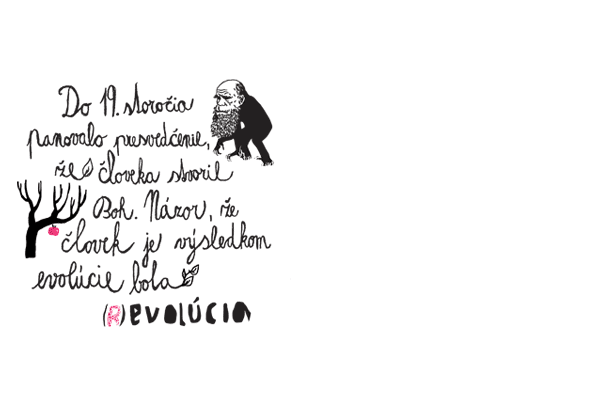 Do 19. storočia
panovalo presvedčenie,
že človeka stvoril
Boh. Názor, že
človek je výsledkom
evolúcie bola
(R)EVOLÚCIA